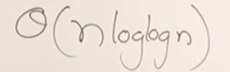 O(n loglogn)